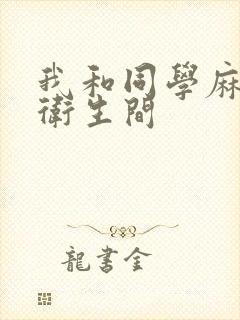 我和同學麻
衛生間
龍書金